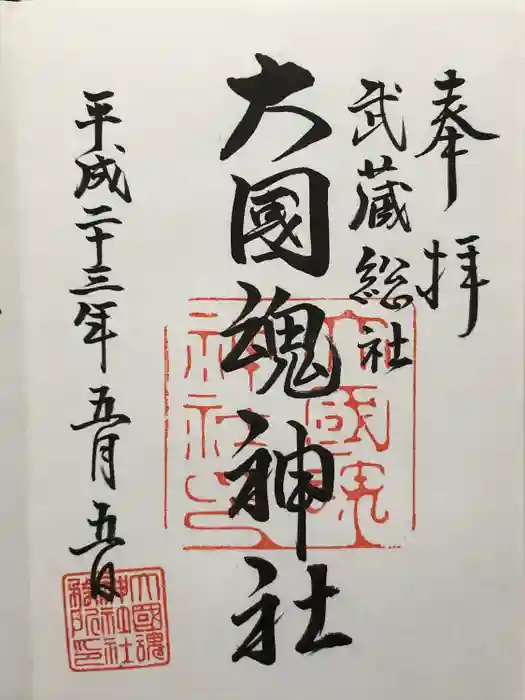 奉拝
武蔵総社
大國魂神社
平成二十三年五月五日
大國魂
神社印
大國魂
神社社